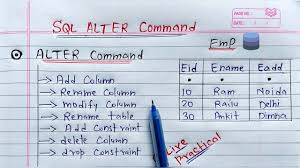 SQL ALTER Command
PAGE NO.
DATE
ALTER Command
EmP
→ Add Column
→ Rename Column
→ modify Column
→ Rename table
→ Add Constraint
→ delete Column
→ drop Constraint
Eid Ename Eadd
10 Ram Noida
20 Raju Delhi
30 Ankit
Live Practical